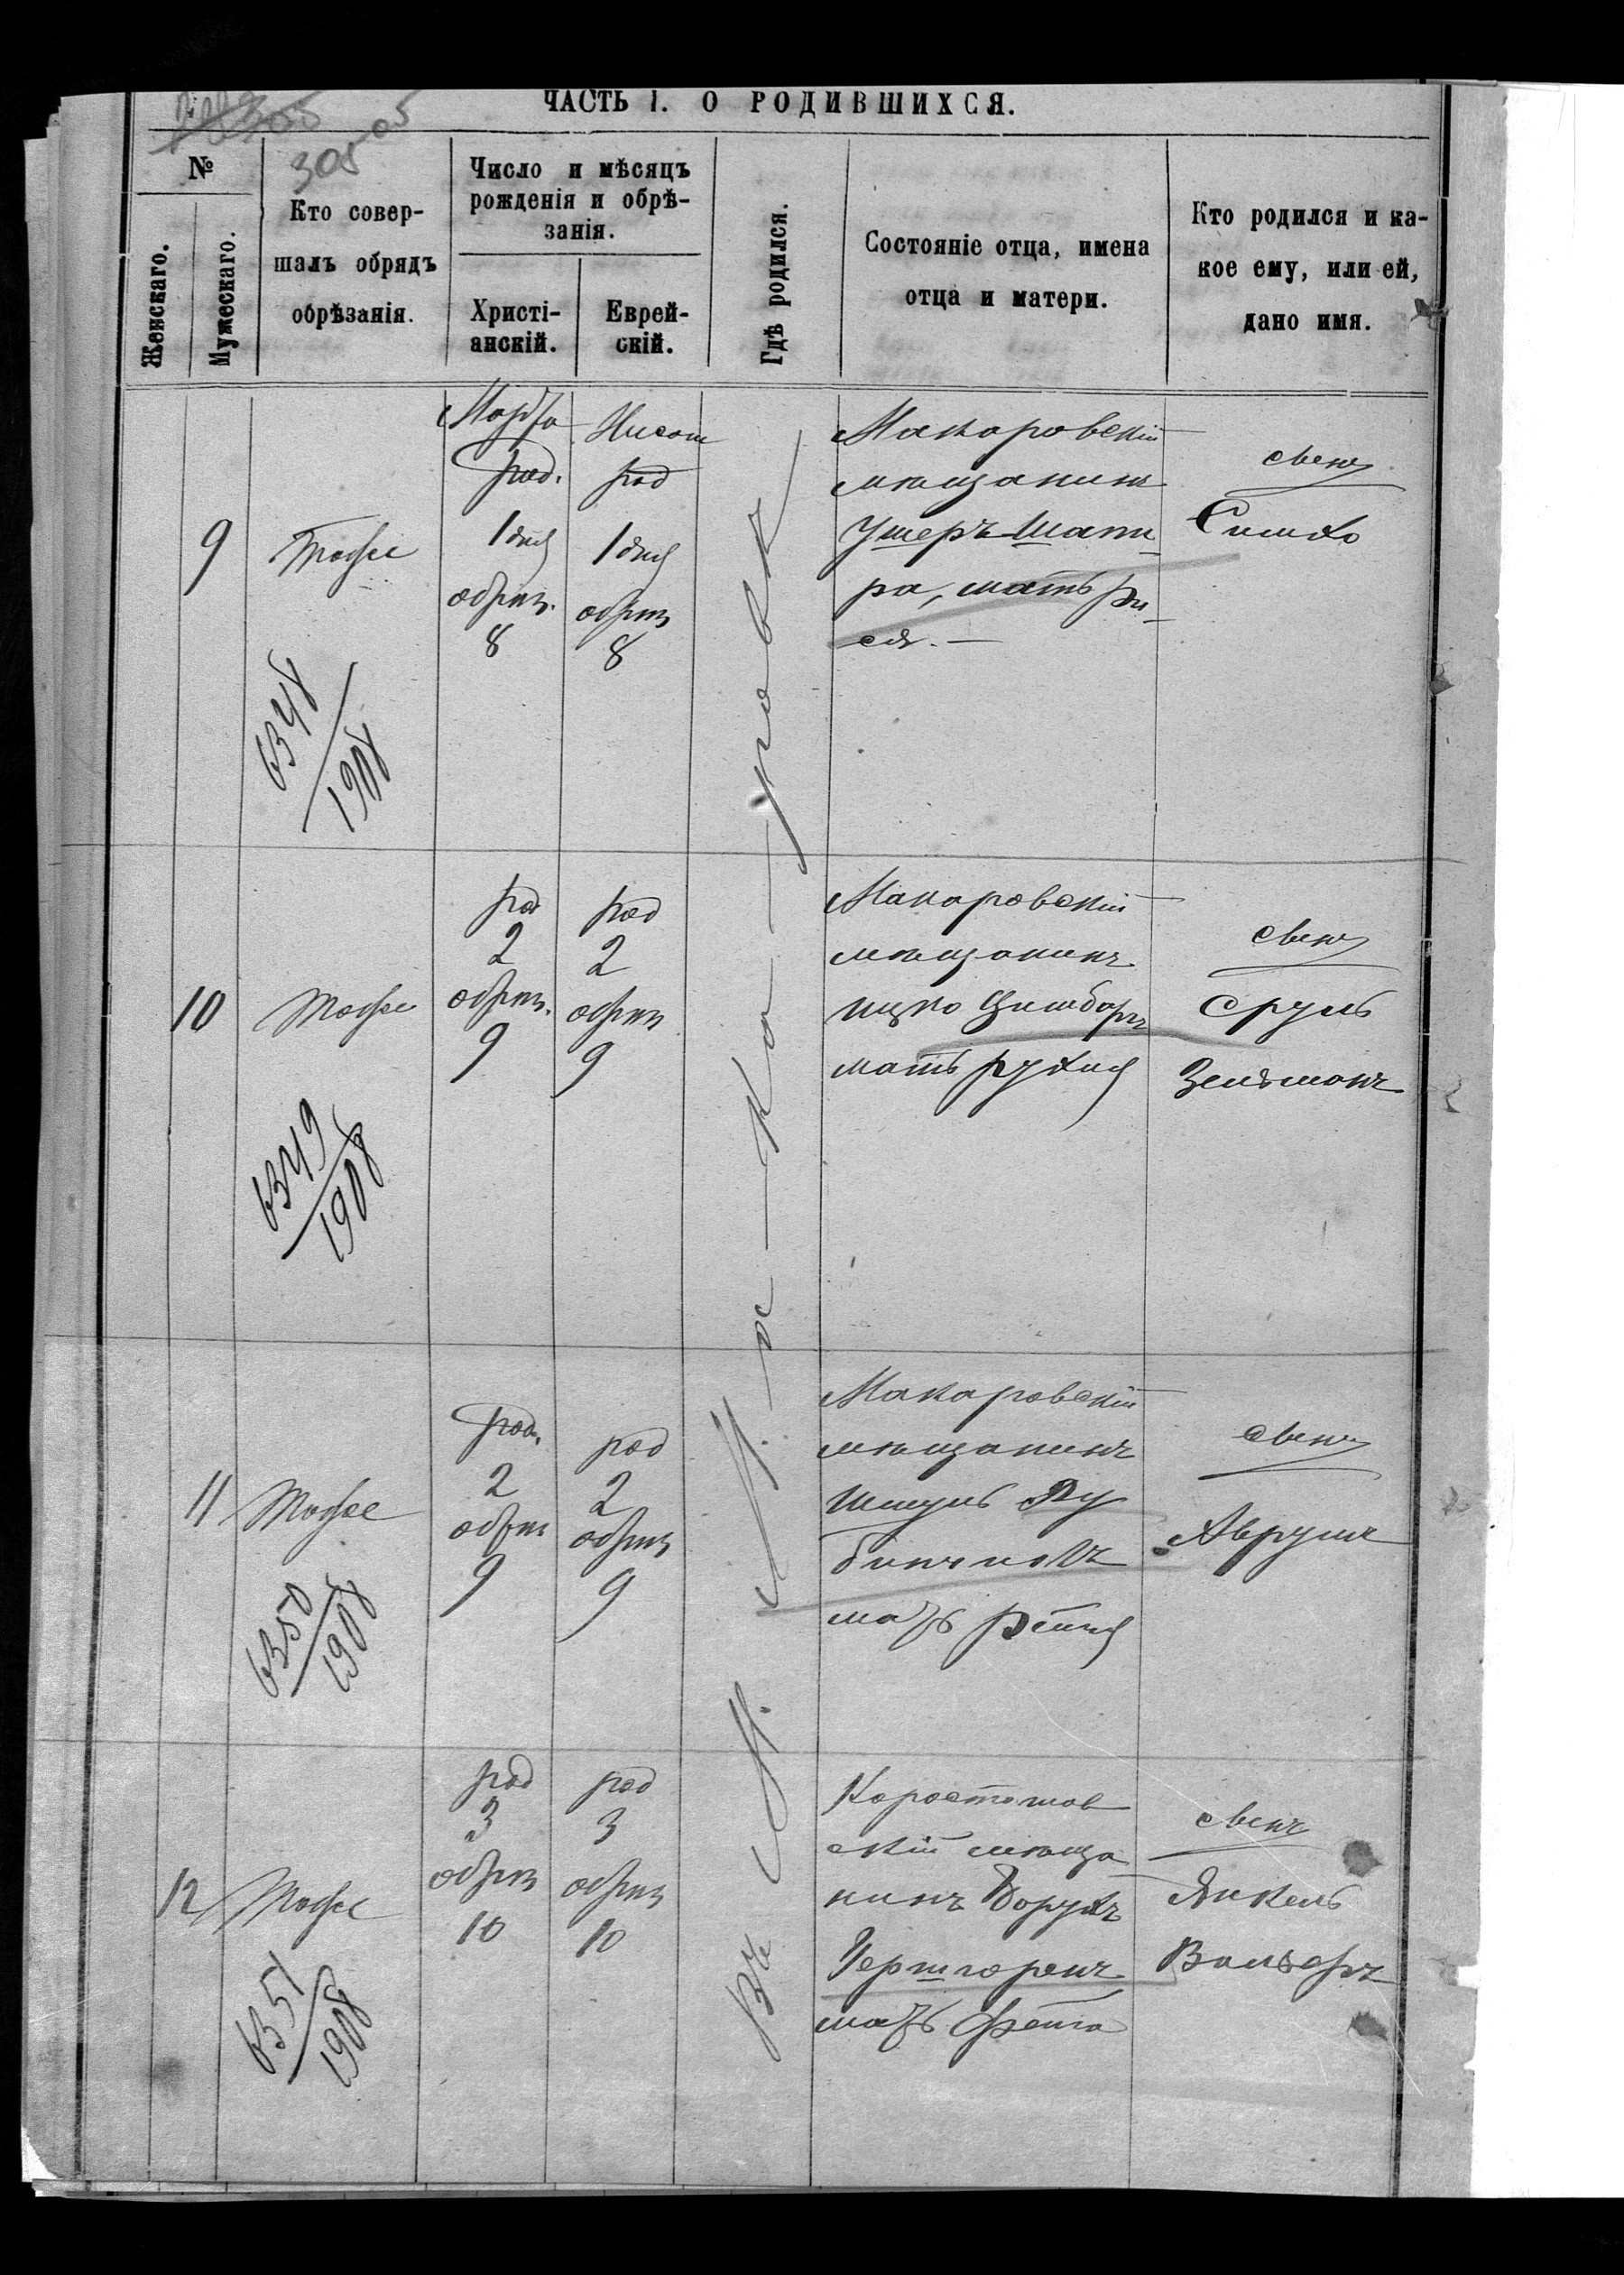 ЧАСТЬ I. О РОДИВШИХСЯ.
305
№
Женскаго.
Мужескаго.
Кто совер-
шалъ обрядъ
обрѣзанія.
Число и мѣсяцъ
рожденія и обрѣ-
занія.
Христі-
анскій.
Еврей-
скій.
Гдѣ родился.
Состояніе отца, имена
отца и матери.
Кто родился и ка-
кое ему, или ей,
дано имя.
Въ М. М-ѣ-Ка-ровѣ
9
Тотже
6348
1908
Марта
род.
1 дня
обрѣз.
8
Нисон
род
1 дня
обрѣз
8
Макаровскій
мѣщанинъ
Ушеръ Шапи-
ра, мать Ри-
ся.
сынъ
Симхо
10
Тотже
6349
1908
род
2
обрѣз.
9
род
2
обрѣз
9
Макаровскій
мѣщанинъ
Ицко
мать Рухля
сынъ
Сруль
Зельманъ
11
Тотже
6350
1908
род.
2
обрѣз
9
род
2
обрѣз
9
Макаровскій
мѣщанинъ
Шмуль Ду
бинчикъ
мать
сынъ
Аврумъ
12
Тотже
6351
1908
род
3
обрѣз
10
род
3
обрѣз
10
Коростышов
скій мѣща
нинъ Борухъ
Герштеренъ
мать Фейга
сынъ
Янкель
Вольфъ